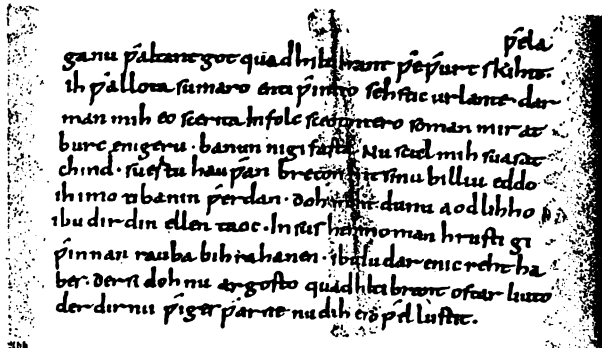 ƿela
ga nu ƿaltant got quad hiltibrant ƿeƿurt skihit.
ih ƿallota sumaro enti ƿintro sehstic urlante dar
man mih eo scerita In folc sceotantero so man mir at
burc enigeru · banun ni gifasta. Nu scal mih suasat
chind · suertu hauƿan breton mit sinu billiu eddo
ih imo ti banin ƿerdan · doh maht du nu aodlihho
ibu dir din ellen taoc · In sus heremo man hrusti gi
ƿinnan rauba bihrahanen · ibu du dar enic reht ha
bes · der si doh nu argosto quad hiltibrant ostar liuto
der dir nu ƿiges ƿarne nu dih es so ƿel lustit ·